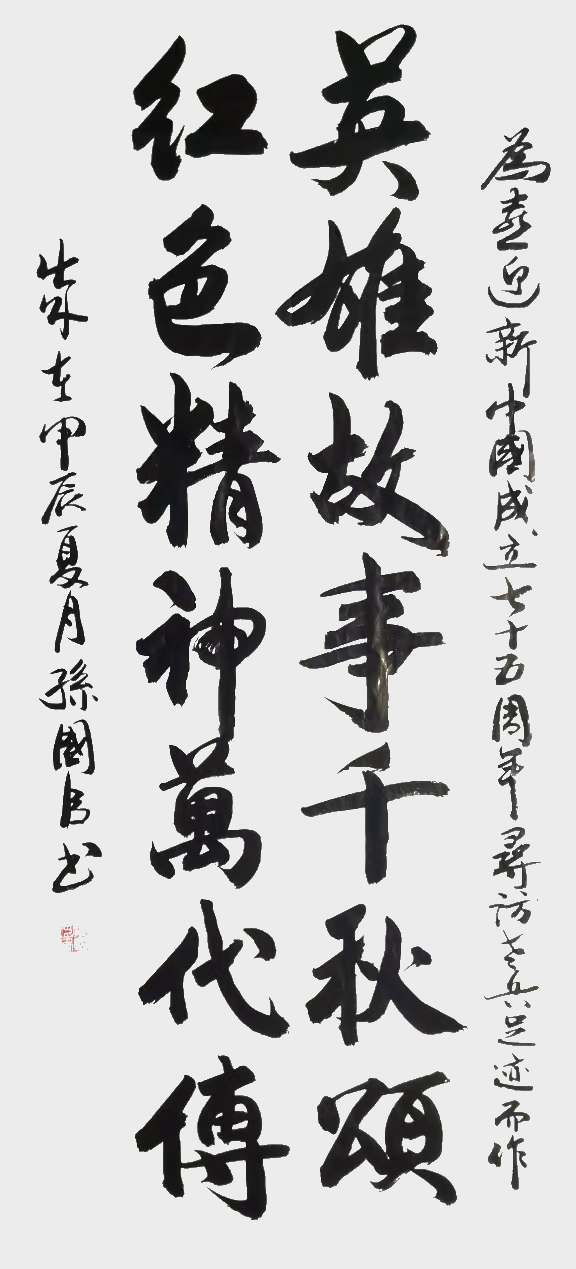 為喜迎新中國成立七十五周年尋訪老兵足迹而作
英雄故事千秋頌
红色精神萬代傳
歲在甲辰夏月孫國书